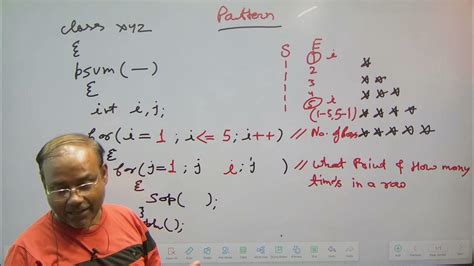 Pattern
class xyz
{
psvm(—)
{
int i,j;
for(i=1 ; i<=5; i++) // No. of
{
for(j=1 ; j i ; j ) // What Print & How many
times in a row
{
Sop( );
}
S E
1 i
2
3
4
5 i
(1-5, 5-1)